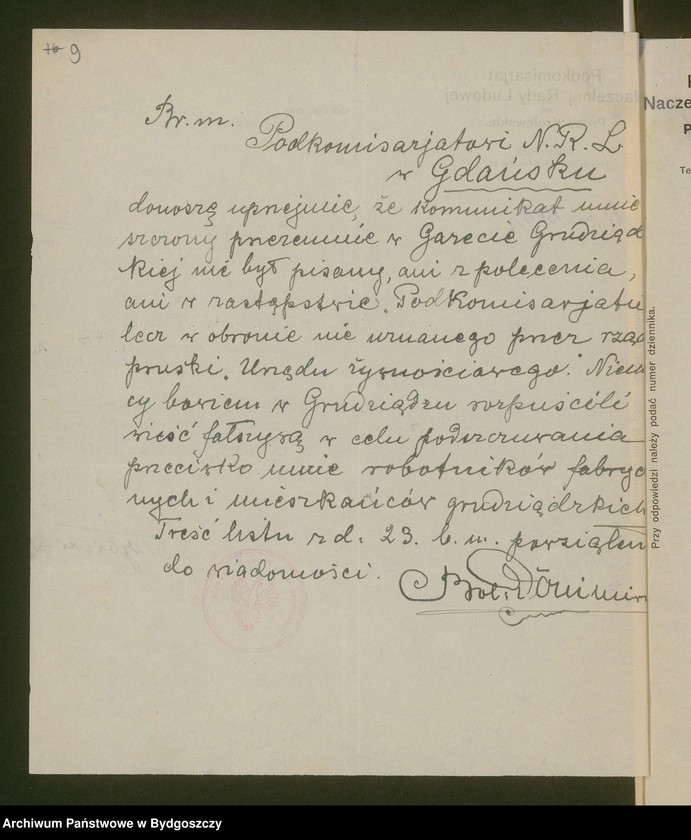 16 9
Br. m.
Podkomisarjatowi N. R. L.
w Gdańsku
donoszę uprzejmie, że komunikat umie
szczony przezemnie w Gazecie Grudziąd
kiej nie był pisany, ani z polecenia,
ani w zastępstwie „Podkomisarjatu
lecz w obronie nie uznanego przez rząd
pruski „Urzędu żywnościowego.” Niem
cy bowiem w Grudziądzu rozpuścili
wieść fałszywą w celu podszczuwania
przeciwko mnie robotników fabrycz
nych i mieszkańców grudziądzkich
Treść listu z d. 23. b. m. powziąłem
do wiadomości.
Podkomisarjat
Naczelnej Rady Ludowej
Nacze
P
Te
Przy odpowiedzi należy podać numer dziennika.
Archiwum Państwowe w Bydgoszczy